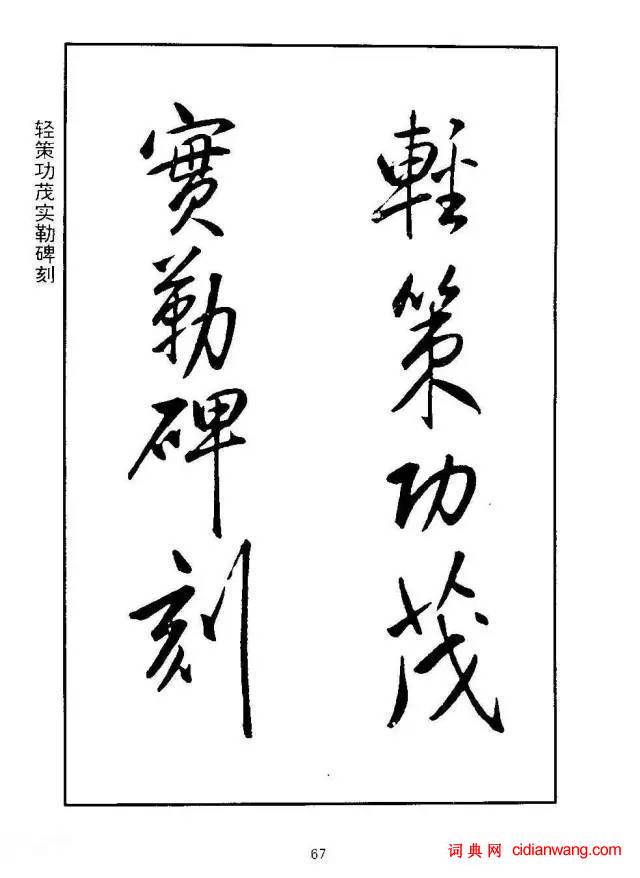 輕策功茂
實勒碑刻
轻策功茂实勒碑刻
67
词典网 cidianwang.com